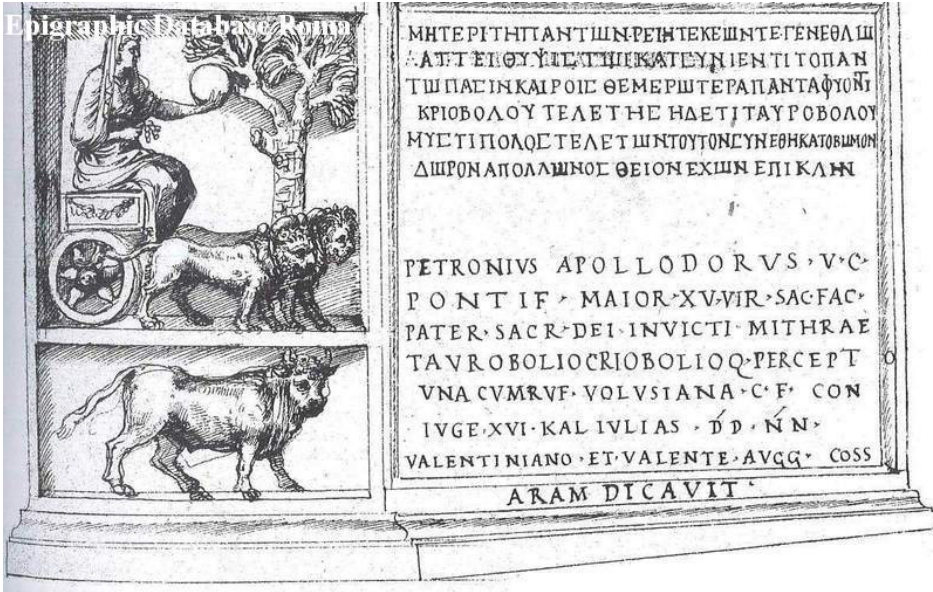 Epigraphic Database Roma
ΜΗΤΕΡΙΤΗΠΑΝΤΩΝ·ΡΕΙΗΤΕΚΕΩΝΤΕΓΕΝΕΘΛΩ
ΑΤΤΕΙΘΥΨΙϹΤΩΙΚΑΤϹΥΝΙΕΝΤΙΤΟΠΑΝ
ΤΩΠΑϹΙΝΚΑΙΡΟΙϹ ΘΕΜΕΡΩΤΕΡΑΠΑΝΤΑΦΥΟΝΤΙ
ΚΡΙΟΒΟΛΟΥ ΤΕΛΕΤΗϹ ΗΔΕΤΙΤΑΥΡΟΒΟΛΟΥ
ΜΥϹΤΙΠΟΛΟϹΤΕΛΕΤΩΝΤΟΥΤΟΝϹΥΝΕΘΗΚΑΤΟΒΩΜΟΝ
ΔΩΡΟΝΑΠΟΛΛΩΝΟϹ ΘΕΙΟΝΕΧΩΝ ΕΠΙΚΛΗΝ
PETRONIVS APOLLODORVS·V·C·
PONTIF· MAIOR·XV·VIR·SAC·FAC·
PATER·SACR·DEI·INVICTI·MITHRAE
TAVROBOLIOCRIOBOLIOQ·PERCEPTO
VNA CVMRVF·VOLVSIANA·C·F· CON
IVGE·XVI·KAL IVLIAS · D́D·ŃN·
VALENTINIANO·ET·VALENTE·AVGG· COSS
ARAM DICAVIT·